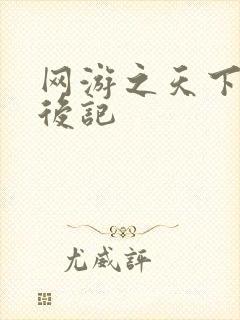 网游之天下
後記
尤威評